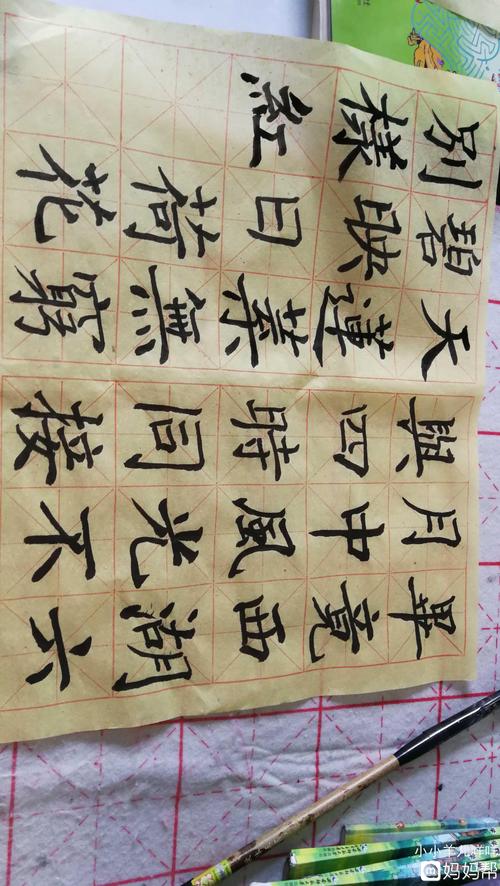 畢竟西湖六
月中風光不
與四時同接
天蓮葉無窮
碧映日荷花
別樣紅
小小羊儿咩咩
妈妈帮